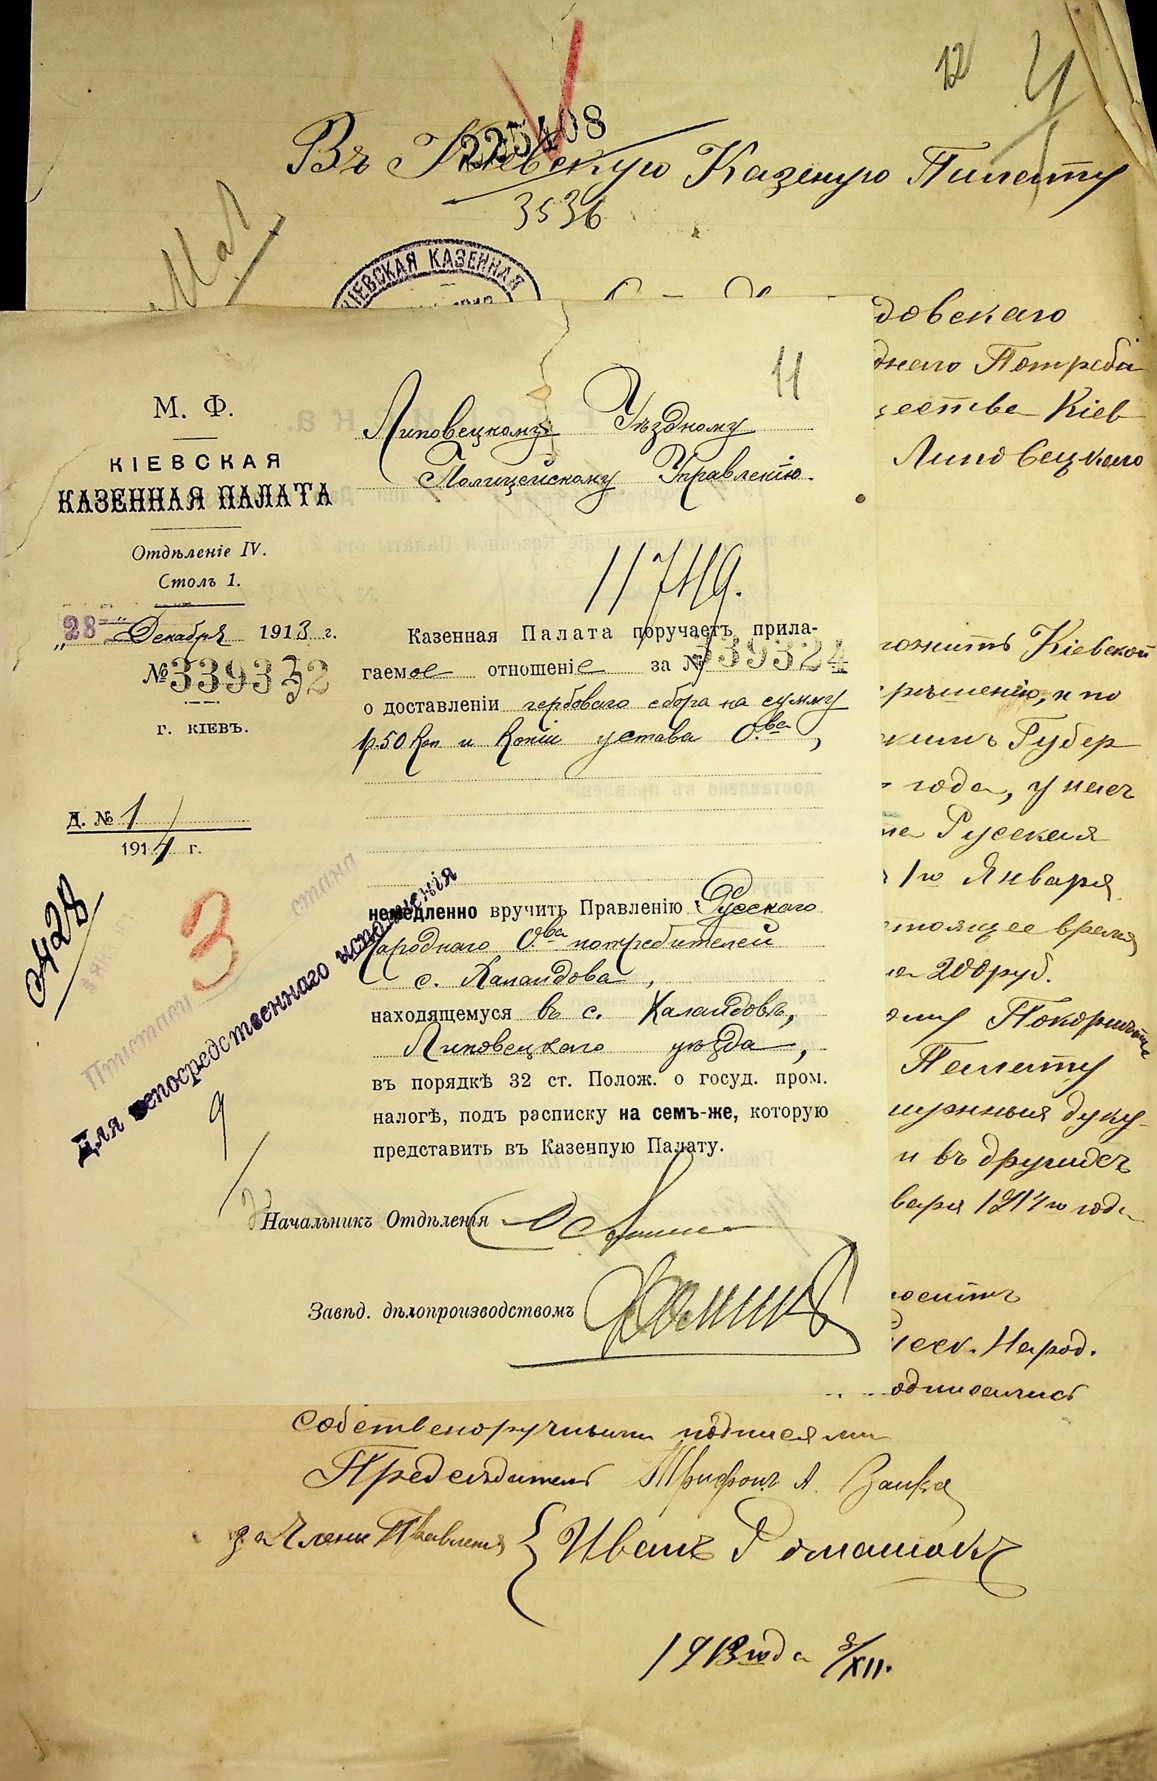 12
Въ Кіевскую Казеную Палату
225408
3536
КІЕВСКАЯ КАЗЕННАЯ
довскаго
днаго Потреби
ества Кіев
Липовецкаго
11
М. Ф.
КІЕВСКАЯ
КАЗЕННАЯ ПАЛАТА
Отдѣленіе IV.
Столъ 1.
"28" Декабря 1913 г.
№ 339332
г. КІЕВЪ.
Д. № 1
1914 г.
Липовецкому Уѣздному
Полицейскому Управленію.
11749.
Казенная Палата поручаетъ прила-
гаемое отношеніе за № 339324
о доставленіи гербоваго сбора на сумму
1р.50 коп и копіи устава О.ва,
немедленно вручить Правленію Русскаго
Народнаго О.ва потребителей
с. Каландова,
находящемуся въ с. Каландовѣ,
Липовецкаго уѣзда,
въ порядкѣ 32 ст. Полож. о госуд. пром.
налогѣ, подъ расписку на семъ-же, которую
представить въ Казенную Палату.
428
Приставу 3 стана
Для непосредственнаго исполненія
Начальникъ Отдѣленія
Завѣд. дѣлопроизводствомъ
ложить Кіевской
рѣшенію, и по
скимъ Губер
года, у насъ
Русская
1го Января
стоящее время
200 руб.
Покорнѣйше
Палату
и въ другихъ
варя 1914го года
росить
Народ.
одписались
Собственоручными подписями
Председатель Трифонъ А. Заика
за Члена Правленія { Иванъ Ромашокъ
1913 года 8/XII.